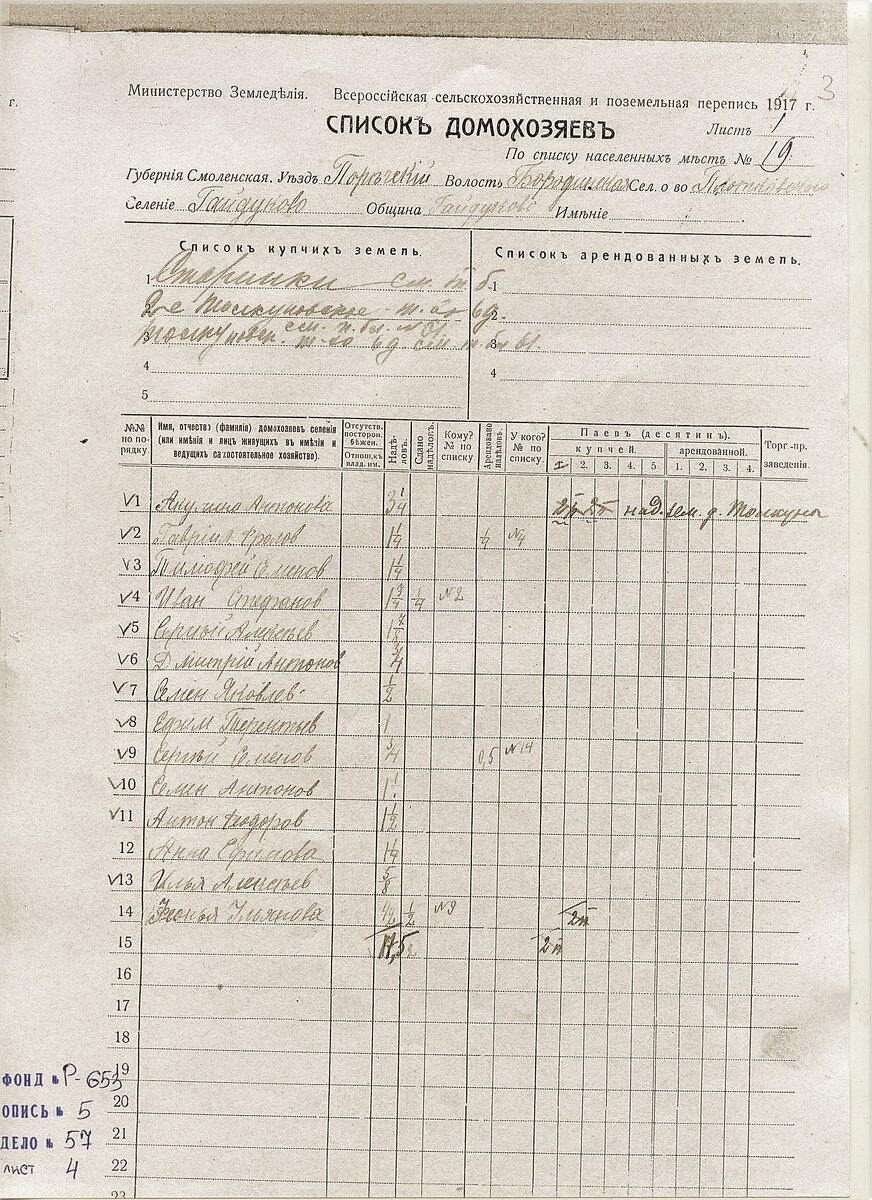 3
Министерство Земледѣлія. Всероссійская сельскохозяйственная и поземельная перепись 1917 г.
СПИСОКЪ ДОМОХОЗЯЕВЪ Листъ 1
По списку населенныхъ мѣстъ № 19
Губернія Смоленская. Уѣздъ Порѣчскій Волость Бородинская Сел. о во
Селеніе Гайдуково Община Гайдуково Имѣніе
Списокъ купчихъ земель. Списокъ арендованныхъ земель.
1 1
2 2
3 3
4 4
5
№№ по порядку. Имя, отчество (фамилія) домохозяевъ селенія (или имѣнія и лицъ живущихъ въ имѣніи и ведущихъ самостоятельное хозяйство). Отсутств. посторон. бѣжен. Отношкъ влад. им. Надѣловъ. Сдано надѣловъ. Кому? № по списку. Арендовано надѣловъ. У кого? № по списку. Паевъ (десятинъ). купчей. 1 2. 3. 4. 5 арендованной. 1. 2. 3. 4. Торг.-пр. заведенія.
V1 Акулина Антонова 3 1/4 над. зем. д.
V2 Гаврил Фролов 1 1/4 1/4 №4
V3 Тимофей Семенов 1 1/4
V4 Иван Стефанов 1 3/4 1/4 №2
V5 Сергѣй Алексѣев 1 7/8
V6 Дмитрій Антонов 3/4
V7 Семен Яковлев 1/2
V8 Ефим Терентьев 1
V9 Сергѣй Семенов 3/4 0,5 №14
V10 Семен Антонов
V11 Антон Федоров 1 1/2
12 Анна Ефимова 1 1/4
V13 Илья Алексѣев 5/8
14 Ильянова 1/2 №9 2п
15 2п
16
17
18
19
20
21
22
23
ФОНД № Р-653
ОПИСЬ № 5
ДЕЛО № 57
лист 4